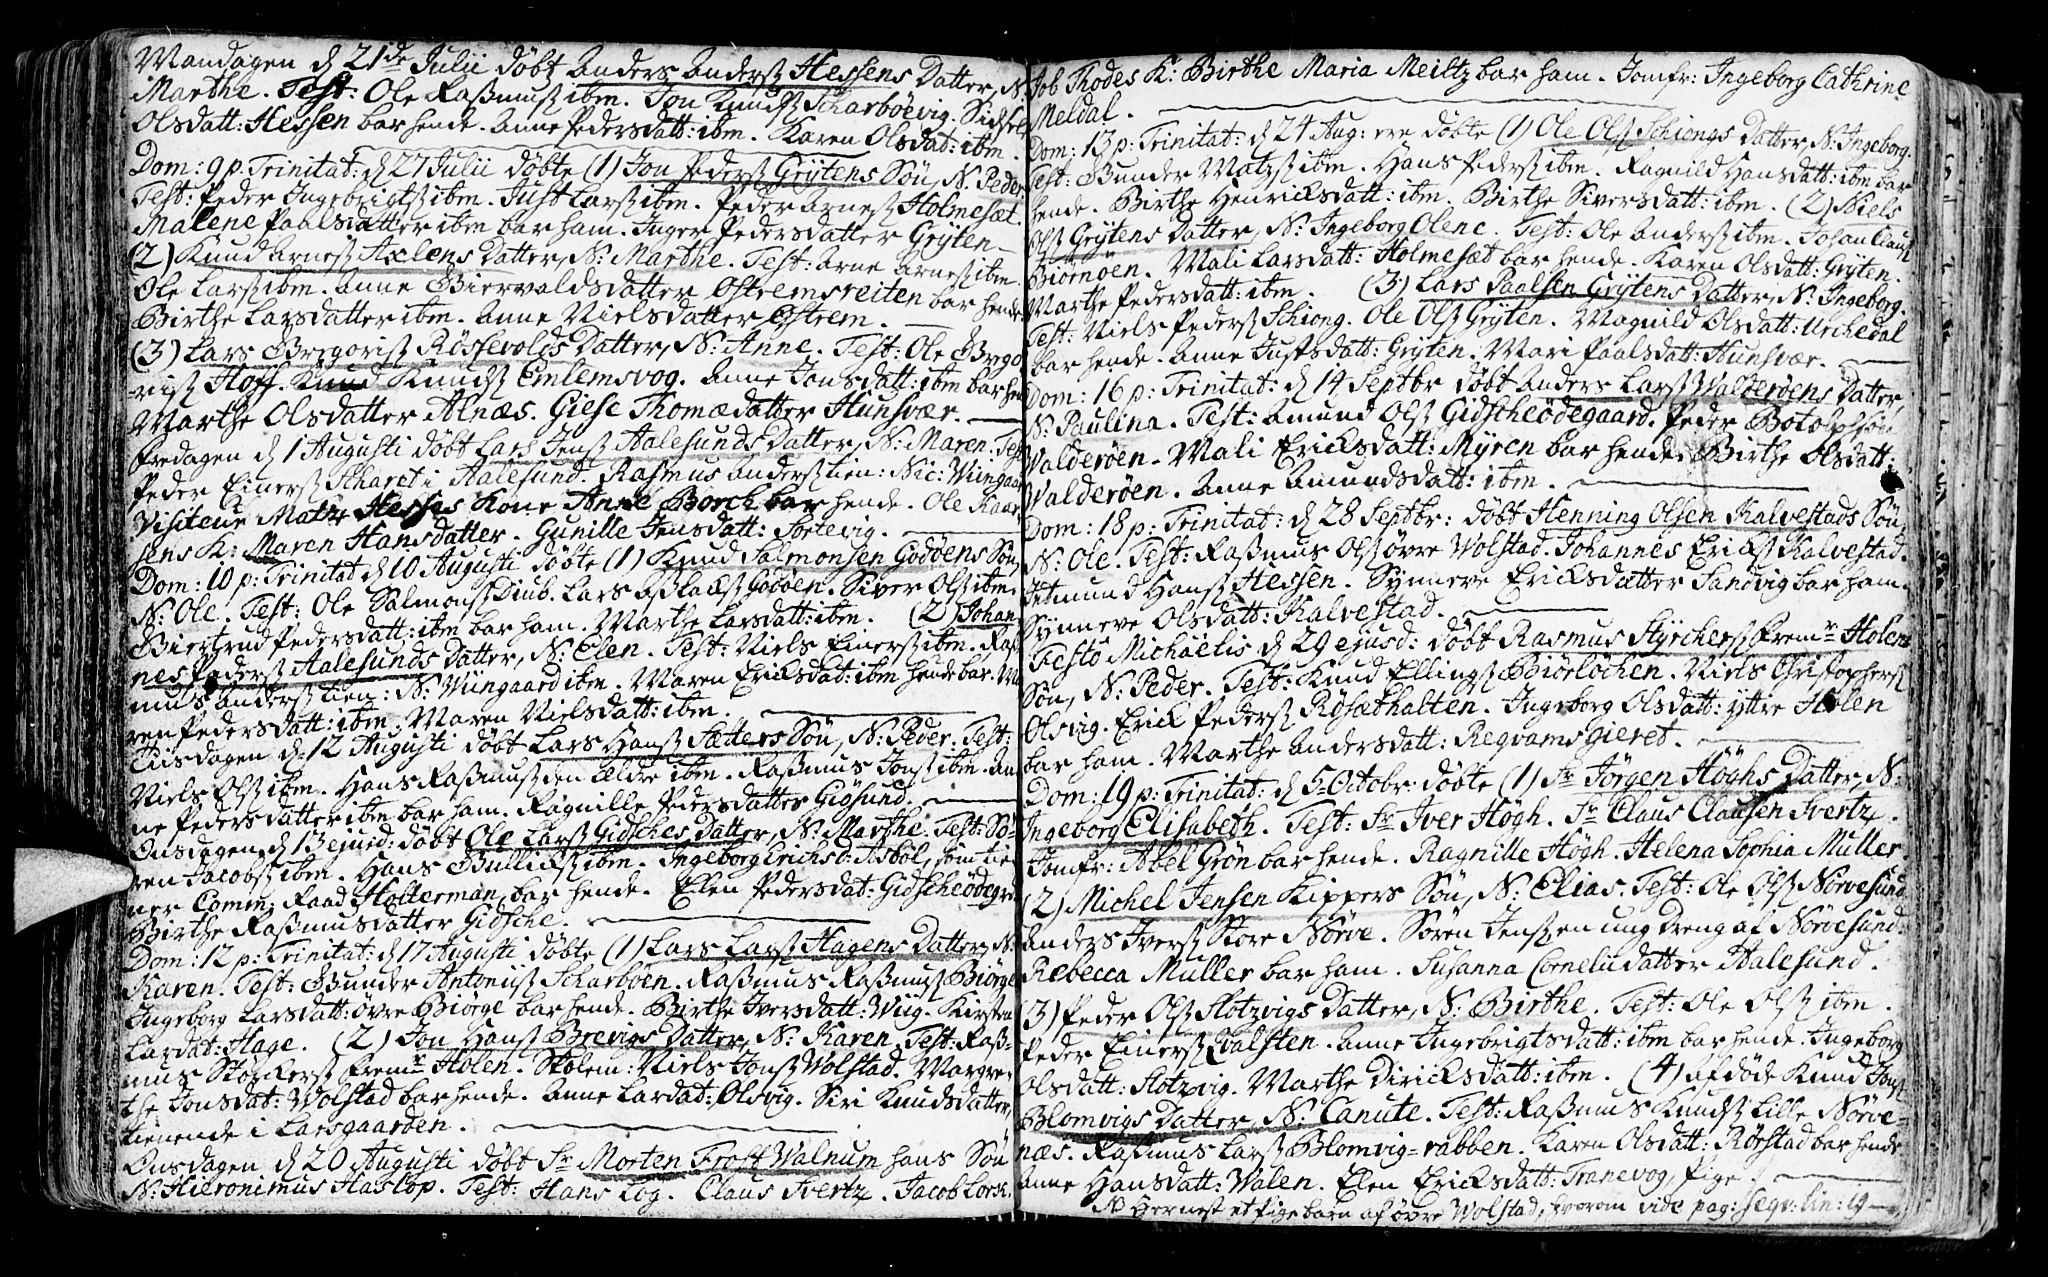 Mandagen d 21de Julii døbt Anders Anderss Hessens Datter, N.
Marthe. Test: Ole Rasmuss ibm. Jon Knuds Scharbøevig. Sidsel
Olsdatt: Hessen bar hende. Anne Pedersdatt: ibm. Karen Olsdat: ibm.
Dom: 9 p: Trinitat: d 27 Julii døbte (1) Jon Peders Grytens Søn, N. Peder.
Test: Peder Ingebrigts ibm. Just Lars ibm. Peder Arnes Holmesæt.
Malene Paalsdatter ibm bar ham. Inger Pedersdatter Gryten
(2) Knud Arness Axlens Datter, N: Marthe. Test: Arne Arness ibm.
Ole Larss ibm. Anne Biervaldsdatter Østremsreiten bar hende
Birthe Larsdatter ibm. Anne Nielsdatter Østrem.
(3) Lars Gregoriss Røssevolds Datter, N: Anne. Test: Ole Grego
-riss Hoff. Knud Knuds Emlemsvog. Anne Jonsdatt: ibm bar hen
Marthe Olsdatter Alnæs. Giese Thomædatter Hunsvær.
Fredagen d 1 Augusti døbt Lars Jens Aalesunds Datter, N: Maren. Test
Peder Einers Scharet i Aalesund. Rasmus Anders tien: Nic: Wiingaar
Visiteur Matz Hesses Kone Anne Borck bar hende. Ole Kaar
sens K: Maren Hansdatter. Gunille Jensdatt: Sortevig.
Dom: 10 p: Trinitat d 10 Augusti døbte (1) Knud Salmonsen Godøens Søn,
N: Ole. Test: Ole Salmons Diub. Lars Aslacs Godøen. Siver Ols ibm.
Biertrud Pedersdatt: ibm bar ham. Marthe Larsdatt: ibm. (2) Johan
nes Peders Aalesunds Datter, N: Elen. Test: Niels Einers ibm. Ras
mus Anders tien: N: Wiingaard ibm. Maren Ericksdat: ibm hende bar. Ma
ren Pedersdatt: ibm. Maren Nielsdatt: ibm.
Tiisdagen d: 12 Augusti døbt Lars Hans Sætters Søn, N: Peder. Test:
Niels Ols ibm. Hans Rasmuss den ældre ibm. Rasmus Jons ibm. An
ne Pedersdatter ibm bar ham. Ragnille Pedersdatter Gigsund.
Onsdagen d 13 ejusd: døbt Ole Lars Gidsches Datter, N: Marthe. Test: Sø-
ren Jacobs ibm. Hans Gullicks ibm. Ingeborg Erichsd: Asbøl, som tie
ner Comm: Raad Holterman, bar hende. Elen Pedersdat: Gidscheødegrd
Birthe Rasmusdatter Gidsche.
Dom: 12 p: Trinitat: d 17 Augusti døbte (1) Lars Lars Hagens Datter, N:
Karen. Test: Gunder Antonii Scharbøen. Rasmus Rasmus Biørge
Ingeborg Larsdatt: øvre Biørge bar hende. Birthe Iversdatt: Wiig. Kirsten
Lardat: Hage. (2) Jon Hans Brevigs Datter, N: Karen. Test: Ras-
mus Størckers Fremr Holen. Skolem: Niels Jons Wolstad. Margre-
the Jonsdat: Wolstad bar hende. Anne Lardat: Olsvig. Siri Knudsdatter,
tienende i Larsgaarden.
Onsdagen d 20 Augusti døbt Sr Morten Frost Walnum hans Søn
N: Hieronimus Hastop. Test: Hans Log. Claus Svertz. Jacob Lorck.
Job Thodes K: Birthe Maria Meiltz bar ham. Jomfr: Ingeborg Cathrine
Meldal.
Dom: 13 p: Trinitat: d 24 Aug: ere døbte (1) Ole Ols Schiongs Datter, N: Ingeborg.
Test: Gunder Matzs ibm. Hans Peders ibm. Ragnild Hansdatt: ibm bar
hende. Birthe Henricksdatt: ibm. Birthe Siversdatt: ibm. (2) Niels
Ols Grytens Datter, N: Ingeborg Olene. Test: Ole Anders ibm. Johan Claus
Biørnøen. Mali Larsdatt: Holmesæt bar hende. Karen Olsdatt: Gryten.
Marthe Pedersdatt: ibm. (3) Lars Paalsen Grytens Datter, N: Ingeborg.
Test: Niels Peders Schiong. Ole Ols Gryten. Magnild Olsdatt: Urchedal
bar hende. Anne Justsdatt: Gryten. Mari Paalsdatt: Hunsvær.
Dom: 16 p: Trinitat: d 14 Septbr døbt Anders Lars Walderøens Datter,
N: Paulina. Test: Amund Ols Gidscheødegaard. Peder Botolphsøn
Walderøen. Mali Ericksdatt: Myren bar hende. Birthe Olsdatt:
Walderøen. Anne Amundsdatt: ibm.
Dom: 18 p: Trinitat: d 28 Septbr: døbt Henning Olsen Kalvestads Søn,
N: Ole. Test: Rasmus Ols øvre Wolstad. Johannes Ericks Kalvestad.
Jetmund Hans Hessen. Synneve Ericksdatter Sandvig bar ham.
Synneve Olsdatt: Kalvestad.
Festo Michaëlis d 29 ejusd: døbt Rasmus Styrchers Fremr Holens
Søn, N: Peder. Test: Knud Ellings Biørlochen. Niels Christophers
Olsvig. Erick Peders Røsæthalten. Ingeborg Olsdatt: yttre Holen
bar ham. Marthe Andersdatt: Regvamsgieret.
Dom: 19 p: Trinitat: d 5 Octobr døbte (1) Sr Jørgen Høghs Datter, N:
Ingeborg Elisabeth. Test: Sr Iver Høgh. Sr Claus Clausen Svertz.
Jomfr: Abel Grøn bar hende. Ragnille Høgh. Helena Sophia Muller.
(2) Michel Jensen Kippers Søn, N: Elias. Test: Ole Ols Nørvesund
Anders Ivers Store Nørve. Søren Jens en ung Dreng af Nørvesund.
Rebecca Muller bar ham. Susanna Corneliidatter Aalesund.
(3) Peder Ols Slotzvigs Datter, N: Birthe. Test: Ole Ols ibm.
Peder Einers Qvalsten. Anne Ingebrigtsdatt: ibm bar hende. Ingeborg
Olsdatt: Slotzvig. Marthe Diricksdatt: ibm. (4) afdøde Knud Jons
Blomvigs Datter, N: Canute. Test: Rasmus Knuds Lille Nørve-
næs. Rasmus Lars Blomvig=rabben. Karen Olsdatt: Rørstad bar hende
Anne Hansdatt: Walen. Elen Ericksdatt: Tranevog, Pige.
NB Hernest et Pigebarn af øvre Wolstad, hvorom vide pag: seqv: lin: 19